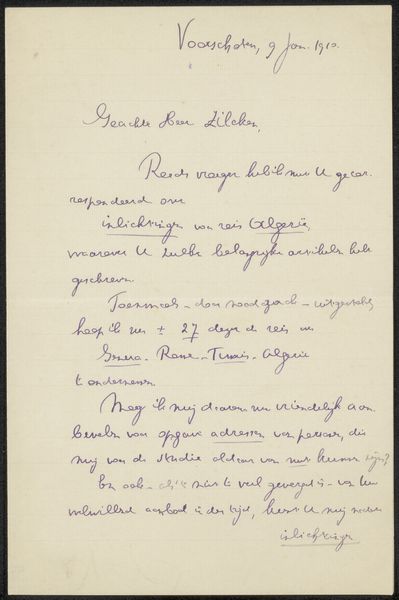 Voorschoten, 9 Jan. 1910.
Geachte Heer Zilcken,
Reeds vroeger heb ik met U gecor-
respondeerd over
inlichtingen van reis Algerië,
waarover U zulke belangrijke artikelen hebt
geschreven.
Toenmaals - door noodzaak - uitgesteld,
hoop ik nu ± 27 dezer de reis
Genua - Rome - Tunis - Algerie
te ondernemen.
Mag ik mij daarom vriendelijk aan-
bevelen voor opgave adressen van personen, die
mij van de studie aldaar van nut kunnen zijn?
En ook - als 't niet te veel gevergd is - van Uw
welwillend aanbod in der tijd,
inlichtingen